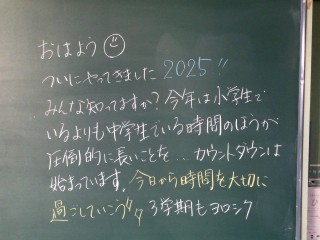 おはよう
ついにやってきました 2025!!
みんな知ってますか？今年は小学生で
いるよりも中学生でいる時間のほうが
圧倒的に長いことを…カウントダウンは
始まっています。今日から時間を大切に
過ごしていこう!! 3学期もヨロシク